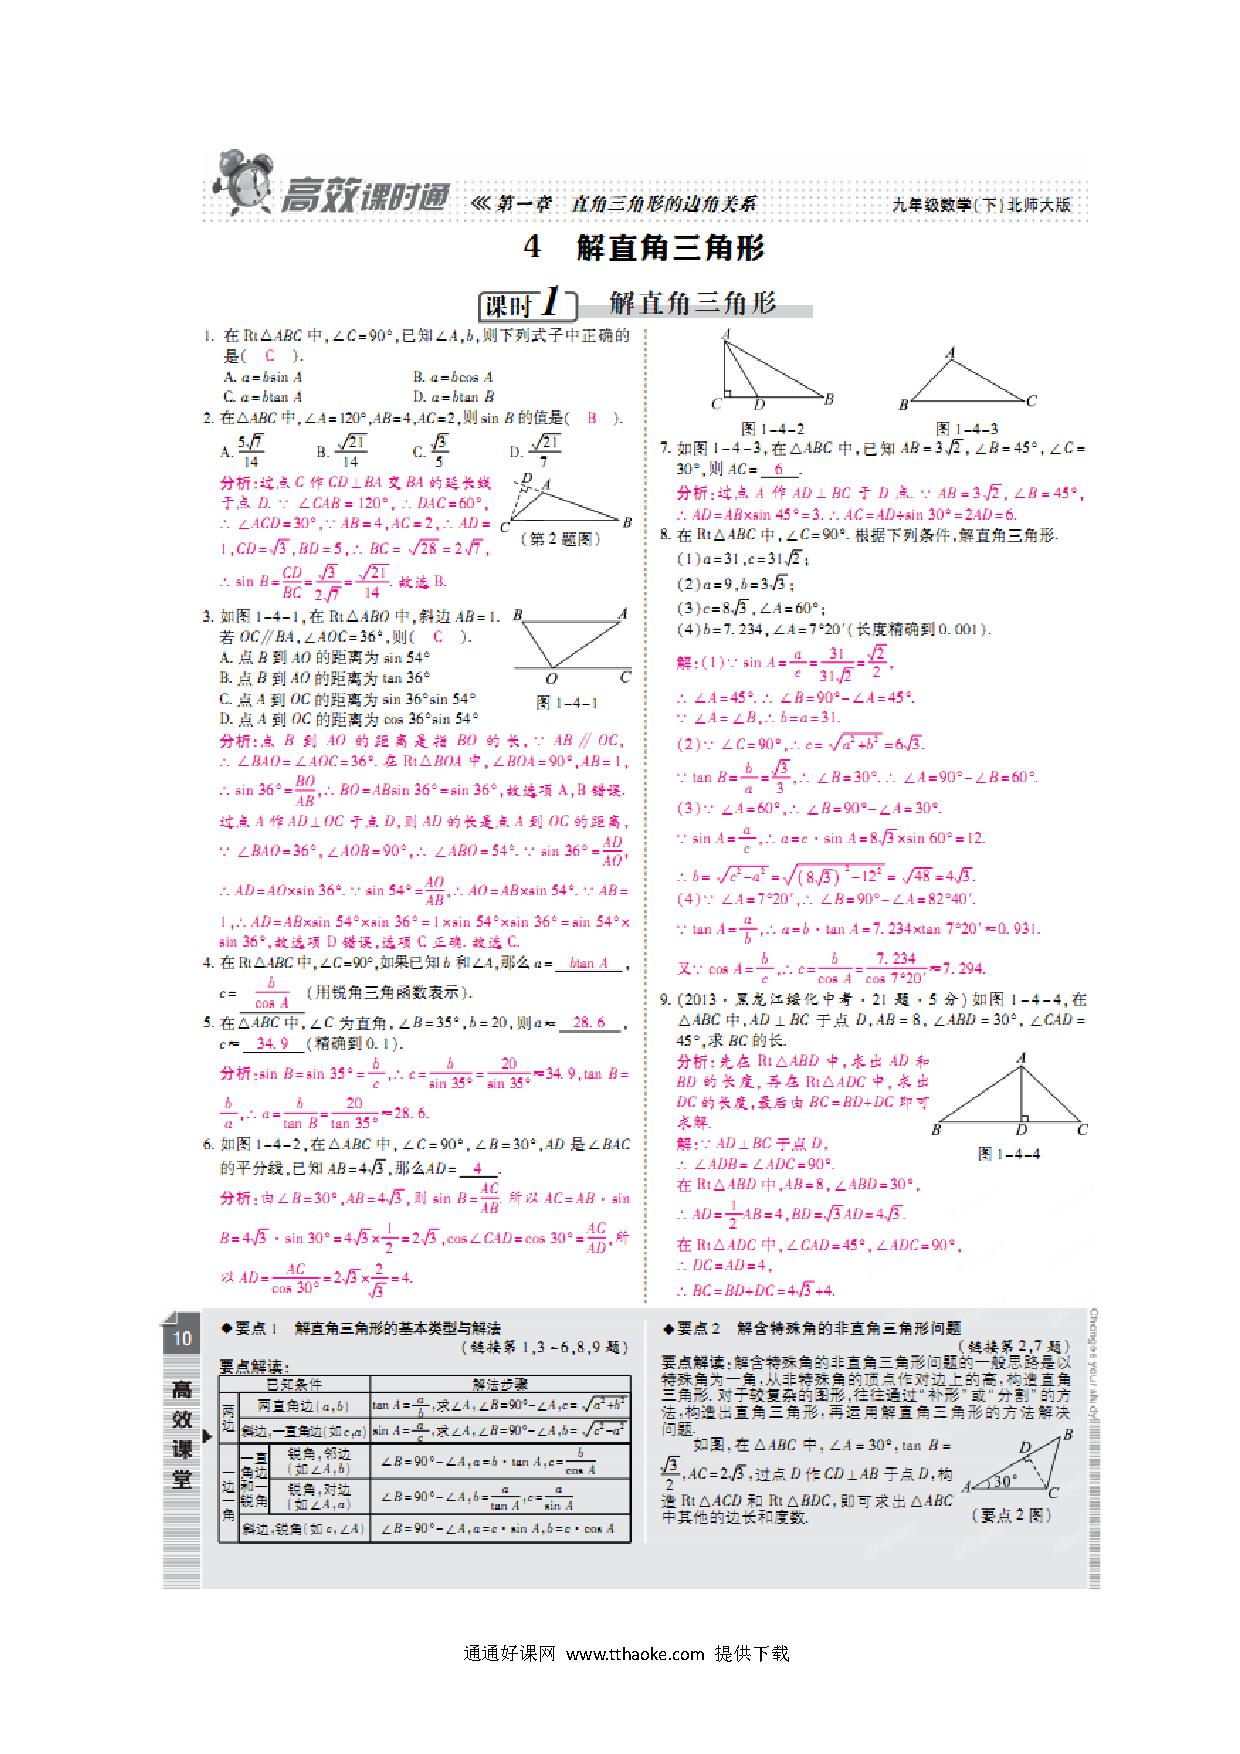 高效课时通 第一章 直角三角形的边角关系 九年级数学(下)北师大版
4 解直角三角形
课时1 解直角三角形
1. 在Rt△ABC中,∠C=90°,已知∠A,b,则下列式子中正确的
是( C ).
A. a=bsin A B. a=bcos A
C. a=btan A D. a=btan B
2. 在△ABC中,∠A=120°,AB=4,AC=2,则sin B的值是( B ).
A. 5√7/14 B. √21/14 C. √3/5 D. √21/7
分析:过点C作CD⊥BA交BA的延长线
于点D. ∵ ∠CAB=120°,∴ ∠DAC=60°,
∴ ∠ACD=30°,∵ AB=4,AC=2,∴ AD=
1,CD=√3,BD=5,∴ BC=√28=2√7,
∴ sin B=CD/BC=√3/2√7=√21/14. 故选B.
D A C B
(第2题图)
3. 如图1-4-1,在Rt△ABO中,斜边AB=1.
若OC∥BA,∠AOC=36°,则( C ).
A. 点B到AO的距离为sin 54°
B. 点B到AO的距离为tan 36°
C. 点A到OC的距离为sin 36°sin 54°
D. 点A到OC的距离为cos 36°sin 54°
B A O C
图1-4-1
分析:点B到AO的距离是指BO的长,∵ AB∥OC,
∴ ∠BAO=∠AOC=36°. 在Rt△BOA中,∠BOA=90°,AB=1,
∴ sin 36°=BO/AB,∴ BO=ABsin 36°=sin 36°,故选项A,B错误.
过点A作AD⊥OC于点D,则AD的长是点A到OC的距离,
∵ ∠BAO=36°,∠AOB=90°,∴ ∠ABO=54°. ∵ sin 36°=AD/AO,
∴ AD=AO×sin 36°. ∵ sin 54°=AO/AB,∴ AO=AB×sin 54°. ∵ AB=
1,∴ AD=AB×sin 54°×sin 36°=1×sin 54°×sin 36°=sin 54°×
sin 36°,故选项D错误,选项C正确. 故选C.
4. 在Rt△ABC中,∠C=90°,如果已知b和∠A,那么a= btan A ,
c= b/cos A (用锐角三角函数表示).
5. 在△ABC中,∠C为直角,∠B=35°,b=20,则a≈ 28.6 ,
c≈ 34.9 (精确到0.1).
分析:sin B=sin 35°=b/c,∴ c=b/sin 35°=20/sin 35°≈34.9,tan B=
b/a,∴ a=b/tan B=20/tan 35°≈28.6.
6. 如图1-4-2,在△ABC中,∠C=90°,∠B=30°,AD是∠BAC
的平分线,已知AB=4√3,那么AD= 4 .
分析:由∠B=30°,AB=4√3,则sin B=AC/AB. 所以AC=AB·sin
B=4√3·sin 30°=4√3×1/2=2√3,cos∠CAD=cos 30°=AC/AD,所
以AD=AC/cos 30°=2√3×2/√3=4.
A C D B
图1-4-2
A B C
图1-4-3
7. 如图1-4-3,在△ABC中,已知AB=3√2,∠B=45°,∠C=
30°,则AC= 6 .
分析:过点A作AD⊥BC于D点. ∵ AB=3√2,∠B=45°,
∴ AD=AB×sin 45°=3. ∴ AC=AD÷sin 30°=2AD=6.
8. 在Rt△ABC中,∠C=90°. 根据下列条件,解直角三角形.
(1)a=31,c=31√2;
(2)a=9,b=3√3;
(3)c=8√3,∠A=60°;
(4)b=7.234,∠A=7°20′(长度精确到0.001).
解:(1)∵ sin A=a/c=31/31√2=√2/2,
∴ ∠A=45°. ∴ ∠B=90°-∠A=45°.
∵ ∠A=∠B,∴ b=a=31.
(2)∵ ∠C=90°,∴ c=√(a²+b²)=6√3.
∵ tan B=b/a=√3/3,∴ ∠B=30°. ∴ ∠A=90°-∠B=60°.
(3)∵ ∠A=60°,∴ ∠B=90°-∠A=30°.
∵ sin A=a/c,∴ a=c·sin A=8√3×sin 60°=12.
∴ b=√(c²-a²)=√((8√3)²-12²)=√48=4√3.
(4)∵ ∠A=7°20′,∴ ∠B=90°-∠A=82°40′.
∵ tan A=a/b,∴ a=b·tan A=7.234×tan 7°20′≈0.931.
又∵ cos A=b/c,∴ c=b/cos A=7.234/cos 7°20′≈7.294.
9. (2013·黑龙江绥化中考·21题·5分)如图1-4-4,在
△ABC中,AD⊥BC于点D,AB=8,∠ABD=30°,∠CAD=
45°,求BC的长.
分析:先在Rt△ABD中,求出AD和
BD的长度,再在Rt△ADC中,求出
DC的长度,最后由BC=BD+DC即可
求解.
A B D C
图1-4-4
解:∵ AD⊥BC于点D,
∴ ∠ADB=∠ADC=90°.
在Rt△ABD中,AB=8,∠ABD=30°,
∴ AD=1/2AB=4,BD=√3AD=4√3.
在Rt△ADC中,∠CAD=45°,∠ADC=90°,
∴ DC=AD=4,
∴ BC=BD+DC=4√3+4.
10
高效课堂
◆要点1 解直角三角形的基本类型与解法
(链接第1,3~6,8,9题)
要点解读:
已知条件 解法步骤
两边 两直角边(a,b) tan A=a/b,求∠A,∠B=90°-∠A,c=√(a²+b²)
斜边,一直角边(如c,a) sin A=a/c,求∠A,∠B=90°-∠A,b=√(c²-a²)
一边一角 一直角边和一锐角 锐角,邻边(如∠A,b) ∠B=90°-∠A,a=b·tan A,c=b/cos A
锐角,对边(如∠A,a) ∠B=90°-∠A,b=a/tan A,c=a/sin A
斜边,锐角(如c,∠A) ∠B=90°-∠A,a=c·sin A,b=c·cos A
◆要点2 解含特殊角的非直角三角形问题
(链接第2,7题)
要点解读:解含特殊角的非直角三角形问题的一般思路是以
特殊角为一角,从非特殊角的顶点作对边上的高,构造直角
三角形. 对于较复杂的图形,往往通过“补形”或“分割”的方
法,构造出直角三角形,再运用解直角三角形的方法解决
问题.
如图,在△ABC中,∠A=30°,tan B=
√3/2,AC=2√3,过点D作CD⊥AB于点D,构
造Rt△ACD和Rt△BDC,即可求出△ABC
中其他的边长和度数.
A 30° D B C
(要点2图)
Change your study
通通好课网 www.tthaoke.com 提供下载